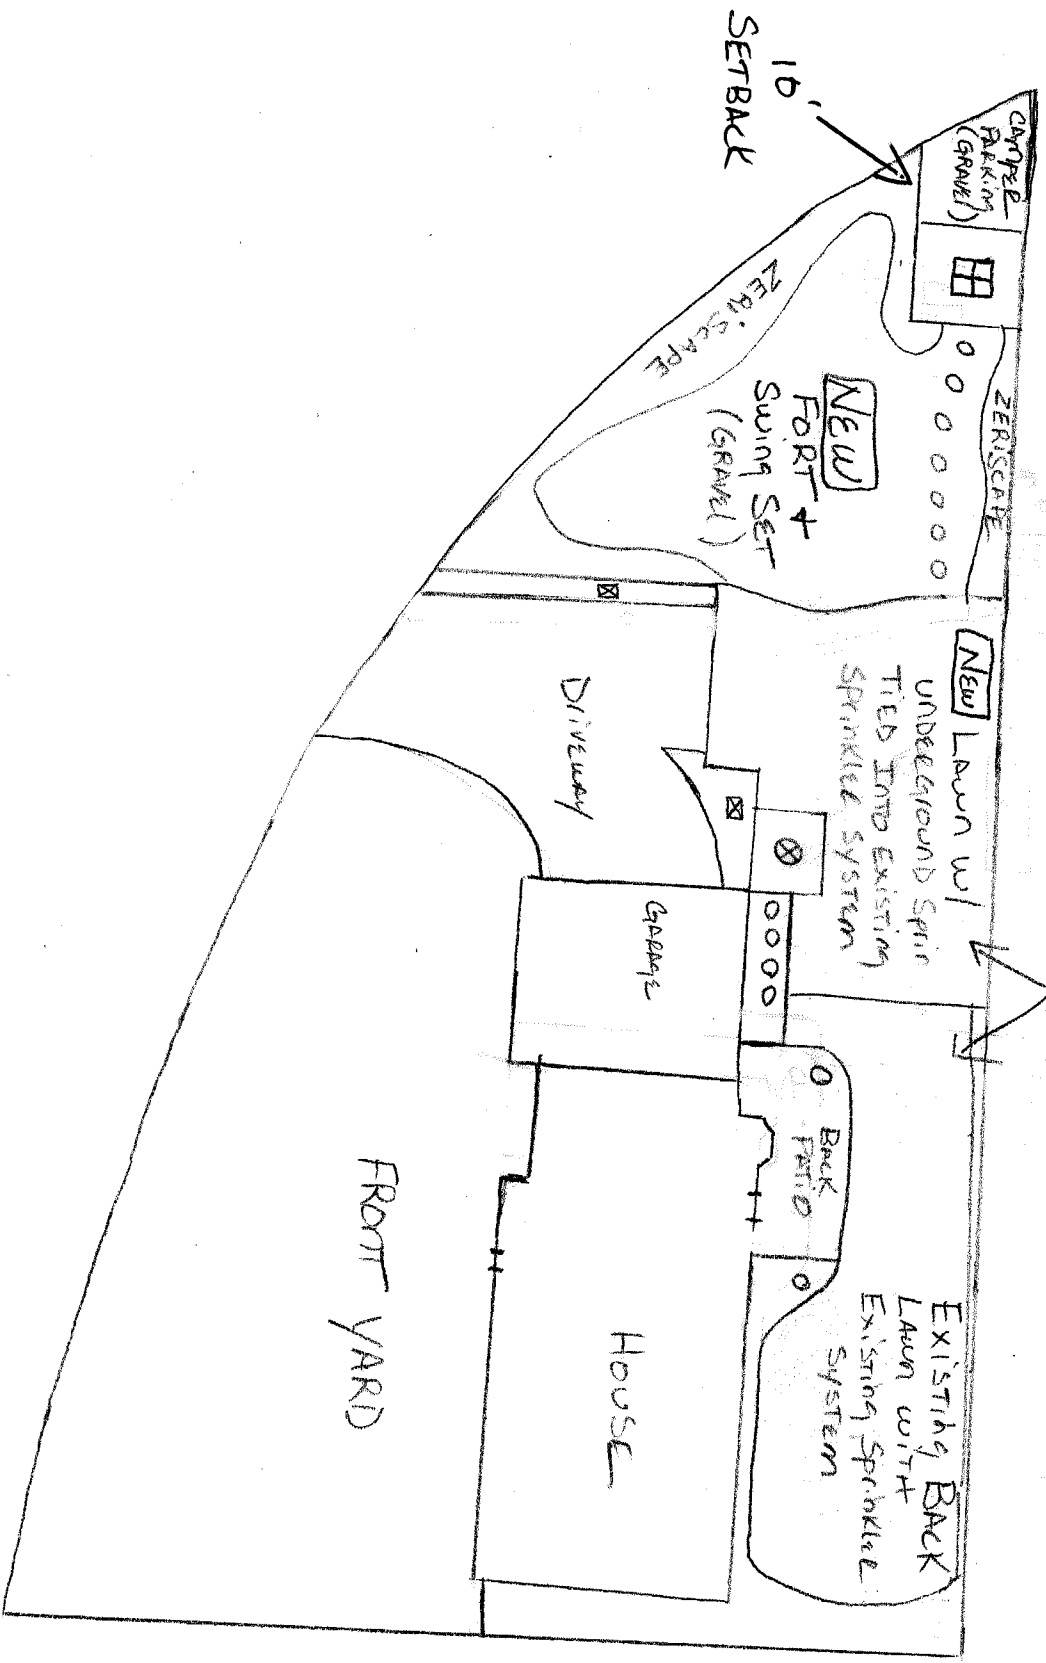 10'
SETBACK
CAMPER
PARKing
(GRAVEl)
ZERiSCAPE
ZERISCAPE
NEW
FORT +
Swing SET
(GRAVEl)
NEW LAwn w/
UNDERGROUND Sprin
TIED INTO EXISTING
SPRINKLER SYSTEM
DRiVEWAY
GARAGE
BACK
PATIO
EXiSTing BACK
LAWN WITH
EXiSTing SprinklER
SYSTEM
HOUSE
FRONT YARD